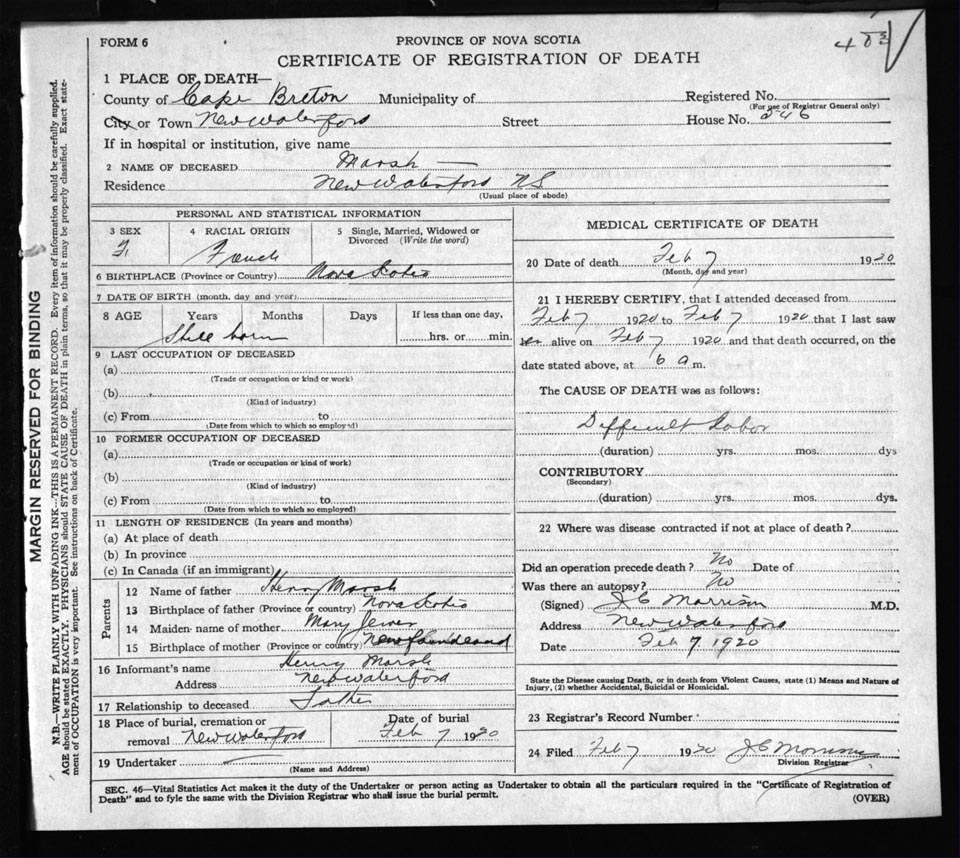 FORM 6
PROVINCE OF NOVA SCOTIA
CERTIFICATE OF REGISTRATION OF DEATH
1 PLACE OF DEATH—
County of Cape Breton Municipality of
Registered No.
(For use of Registrar General only)
City or Town New Waterford Street House No. 246
If in hospital or institution, give name
2 NAME OF DECEASED Marsh —
Residence New Waterford NS
(Usual place of abode)
PERSONAL AND STATISTICAL INFORMATION
3 SEX 4 RACIAL ORIGIN 5 Single, Married, Widowed or Divorced (Write the word)
F. French
6 BIRTHPLACE (Province or Country) Nova Scotia
7 DATE OF BIRTH (month, day and year)
8 AGE Years Months Days If less than one day,
Still born hrs. or min.
9 LAST OCCUPATION OF DECEASED
(a)
(Trade or occupation or kind or work)
(b)
(Kind of industry)
(c) From to
(Date from which to which so employed)
10 FORMER OCCUPATION OF DECEASED
(a)
(Trade or occupation or kind of work)
(b)
(Kind of industry)
(c) From to
(Date from which to which so employed)
11 LENGTH OF RESIDENCE (In years and months)
(a) At place of death
(b) In province
(c) In Canada (if an immigrant)
Parents
12 Name of father Henry Marsh
13 Birthplace of father (Province or country) Nova Scotia
14 Maiden name of mother Mary
15 Birthplace of mother (Province or country) Newfoundland
16 Informant's name Henry Marsh
Address New Waterford
17 Relationship to deceased Father
18 Place of burial, cremation or removal New Waterford
Date of burial
Feb 7 1920
19 Undertaker
(Name and Address)
MEDICAL CERTIFICATE OF DEATH
20 Date of death Feb 7 1920
(Month, day and year)
21 I HEREBY CERTIFY, that I attended deceased from
Feb 7 1920 to Feb 7 1920 that I last saw
alive on Feb 7 1920 and that death occurred, on the
date stated above, at 6 a m.
The CAUSE OF DEATH was as follows:
Difficult Labor
(duration) yrs. mos. dys
CONTRIBUTORY
(Secondary)
(duration) yrs. mos. dys.
22 Where was disease contracted if not at place of death?
Did an operation precede death? No Date of
Was there an autopsy? No
(Signed) J C Morrison M.D.
Address New Waterford
Date Feb 7 1920
State the Disease causing Death, or in death from Violent Causes, state (1) Means and Nature of
Injury, (2) whether Accidental, Suicidal or Homicidal.
23 Registrar's Record Number
24 Filed Feb 7 1920 J C Morrison
Division Registrar
SEC. 46—Vital Statistics Act makes it the duty of the Undertaker or person acting as Undertaker to obtain all the particulars required in the "Certificate of Registration of
Death" and to fyle the same with the Division Registrar who shall issue the burial permit.
(OVER)
MARGIN RESERVED FOR BINDING
N.B.—WRITE PLAINLY WITH UNFADING INK—THIS IS A PERMANENT RECORD. Every item of information should be carefully supplied.
AGE should be stated EXACTLY. PHYSICIANS should STATE CAUSE OF DEATH in plain terms, so that it may be properly classified. Exact state-
ment of OCCUPATION is very important. See instructions on back of Certificate.